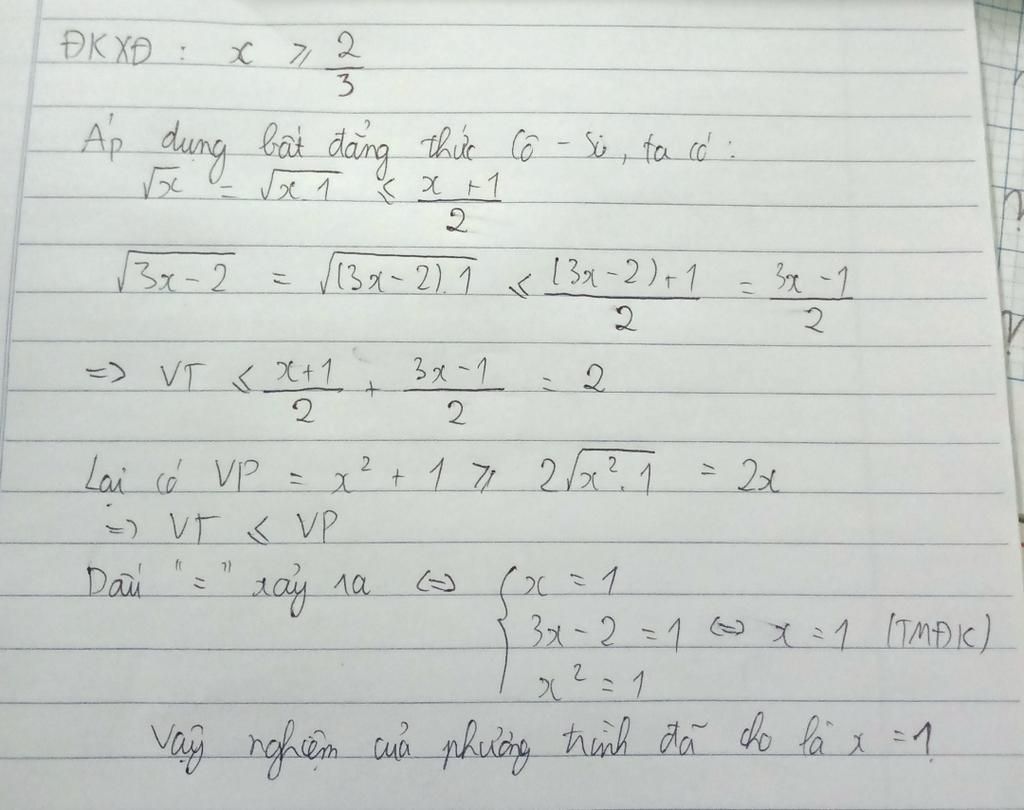 ĐKXĐ : x ⩾ 2/3
Áp dụng bất đẳng thức Cô - Si, ta có :
√x = √(x.1) ⩽ (x+1)/2
√(3x-2) = √((3x-2).1) ⩽ ((3x-2)+1)/2 = (3x-1)/2
=> VT ⩽ (x+1)/2 + (3x-1)/2 = 2
Lại có VP = x² + 1 ⩾ 2√(x².1) = 2x
=> VT ⩽ VP
Dấu "=" xảy ra <=> { x = 1
3x-2 = 1 <=> x = 1 (TMĐK)
x² = 1
Vậy nghiệm của phương trình đã cho là x = 1.